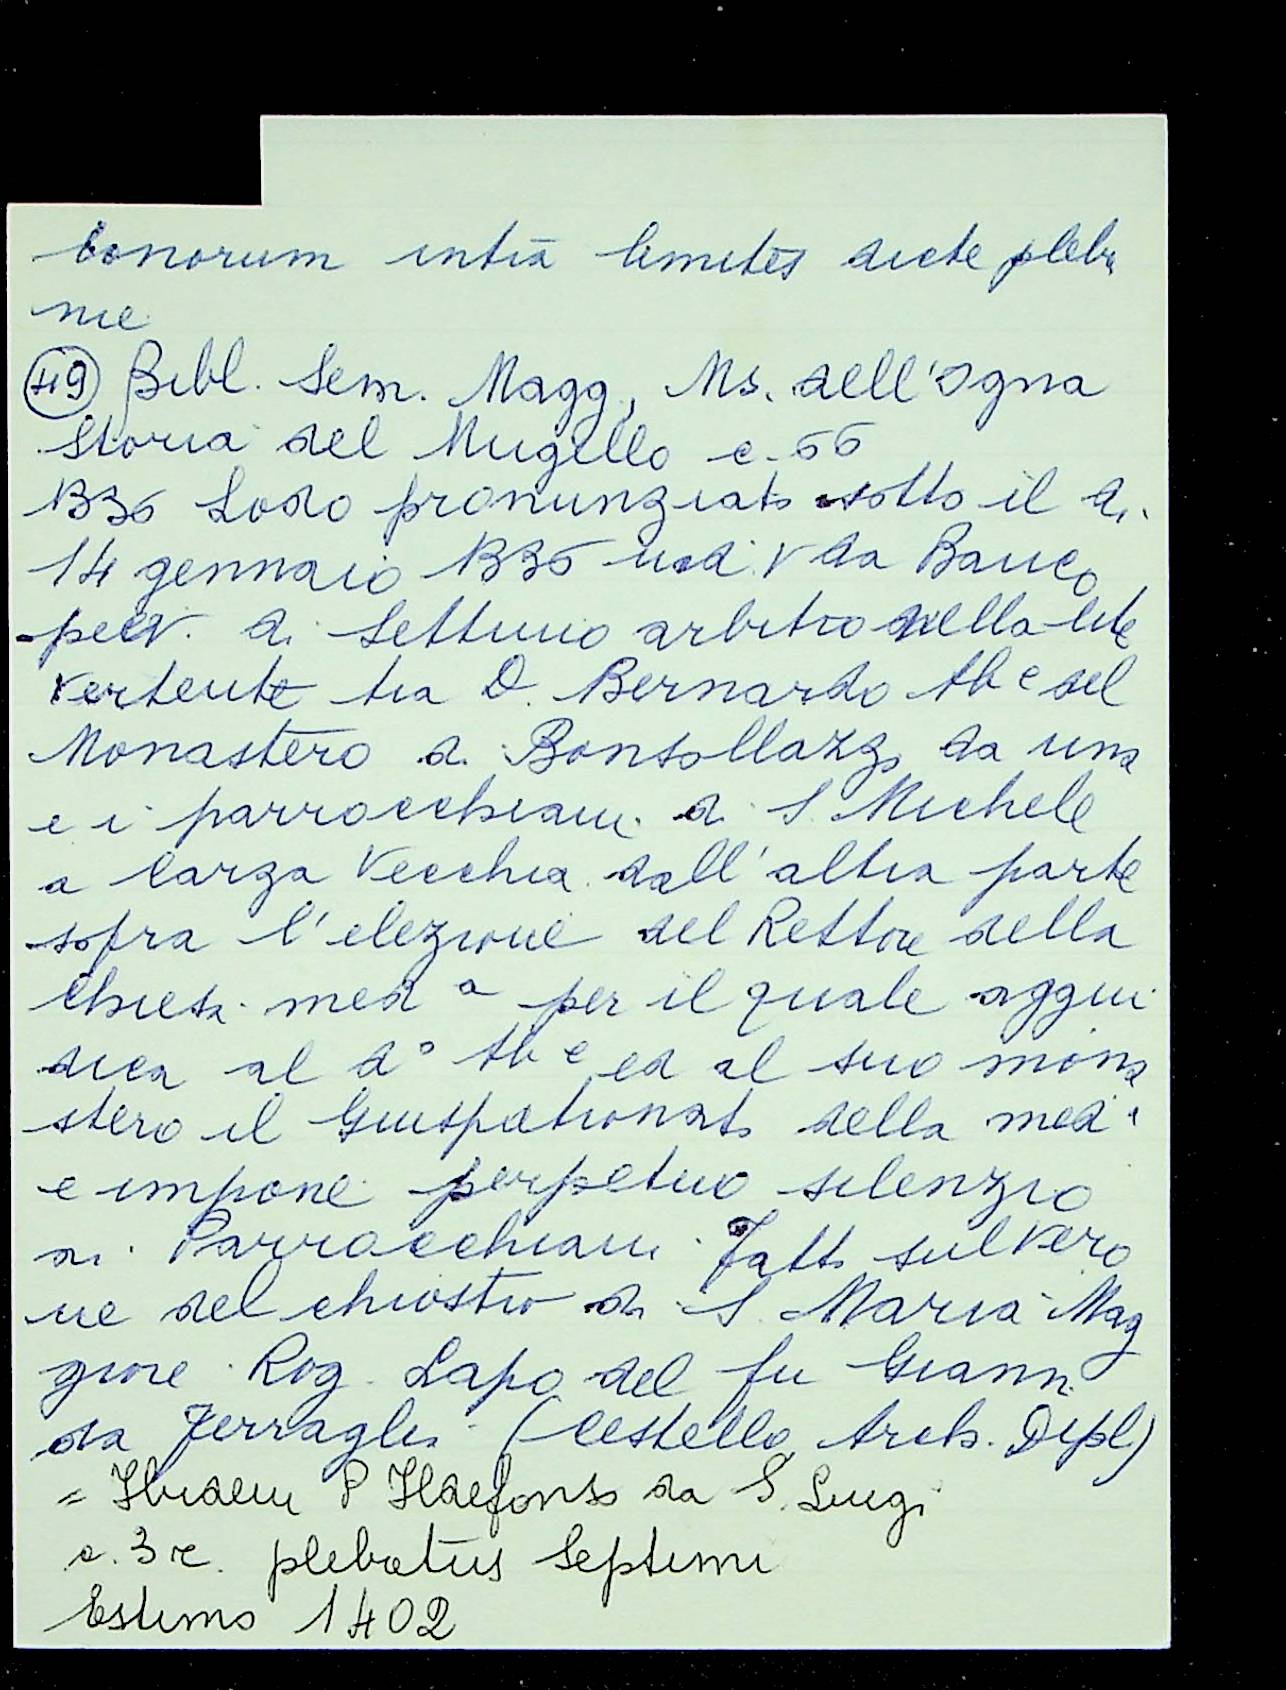 bonorum intra limites dicte plebi
nie
(49) Bibl. Sem. Magg., Ms. dell'Ogna
Storia del Mugello c. 66
1336 Lodo pronunziato sotto il di
14 gennaio 1336 da Bauco
piev. di Settimo arbitro nella lite
vertente tra D. Bernardo Ab e del
Monastero di Bonsollazzo da una
e i parrocchiani di S. Michele
a Carza Vecchia dall'altra parte
sopra l'elezione del Rettore della
Chiesa med a per il quale aggiu
dica al d° Ab e ed al suo mona
stero il Giuspatronato della med a
e impone perpetuo silenzio
ai Parrocchiani. Fatto sul vero
ne del chiostro di S. Maria Mag
giore Rog. Lapo del fu Giann.
da Ferraglia (Cestello Arch. Dipl.)
= Ibidem P Ildefonso da S. Luigi
c. 3 r. plebatus Septimi
Estimo 1402